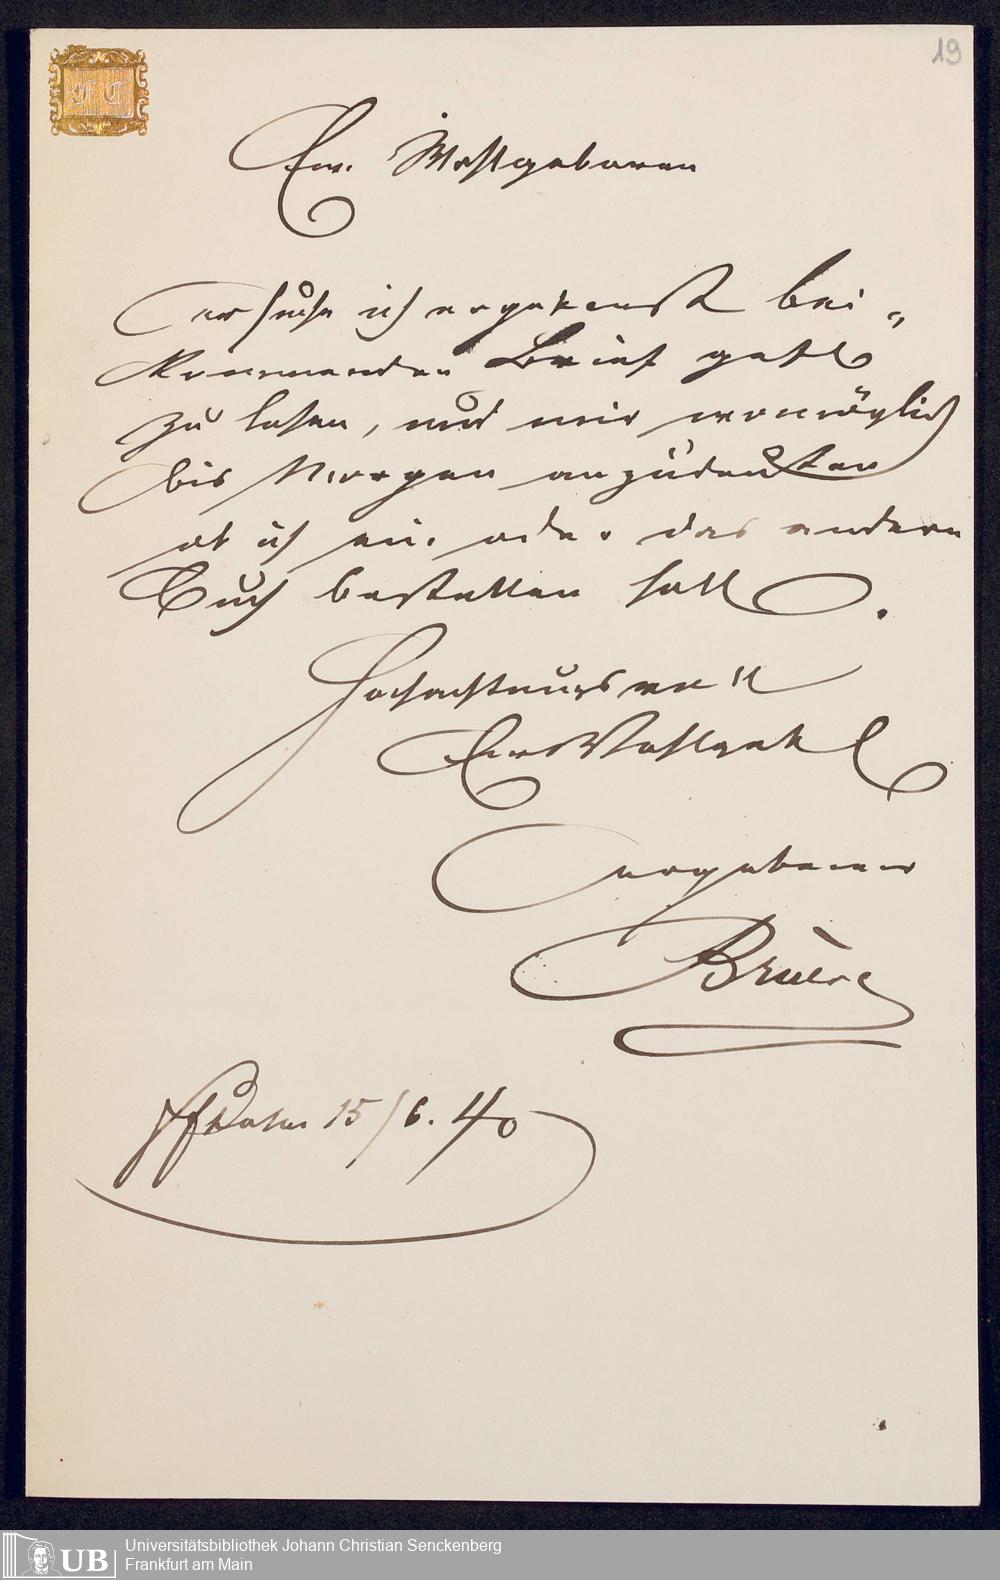 19
F C
Ew. Wohlgeboren
ersuche ich ergebenst bei„
kommenden Brief gefl
zu lesen, und mir womöglich
bis Morgen anzudeuten
ob ich ein. oder das andere
Buch bestellen soll.
Hochachtungsvoll
Ew Wohlgeb
ergebener
Bruère
15/6. 40
UB
Universitätsbibliothek Johann Christian Senckenberg
Frankfurt am Main